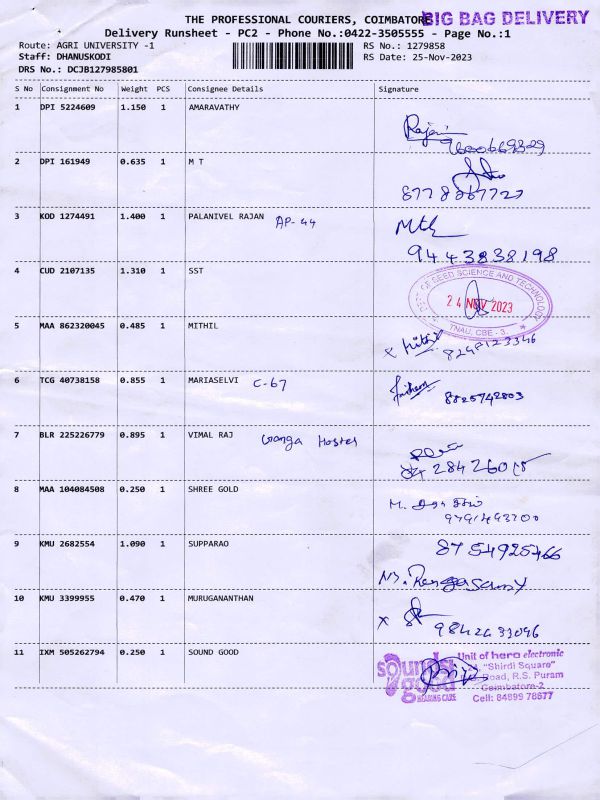 THE PROFESSIONAL COURIERS, COIMBATORE
BIG BAG DELIVERY
Delivery Runsheet - PC2 - Phone No.:0422-3505555 - Page No.:1
Route: AGRI UNIVERSITY -1 RS No.: 1279858
Staff: DHANUSKODI RS Date: 25-Nov-2023
DRS No.: DCJB127985801
S No Consignment No Weight PCS Consignee Details Signature
1 DPI 5224609 1.150 1 AMARAVATHY
2 DPI 161949 0.635 1 M T
3 KOD 1274491 1.400 1 PALANIVEL RAJAN AP-44
9443838198
4 CUD 2107135 1.310 1 SST
DEPT. OF SEED SCIENCE AND TECHNOLOGY
24 NOV 2023
TNAU, CBE - 3.
5 MAA 862320045 0.485 1 MITHIL
6 TCG 40738158 0.855 1 MARIASELVI C-67
8825742803
7 BLR 225226779 0.895 1 VIMAL RAJ Ganga Hostel
8 MAA 104084508 0.250 1 SHREE GOLD
9 KMU 2682554 1.090 1 SUPPARAO
8754925466
N. Rengasamy
10 KMU 3399955 0.470 1 MURUGANANTHAN
9842633096
11 IXM 505262794 0.250 1 SOUND GOOD
sounds good HEARING CARE
Unit of hera electronic
"Shirdi Square"
Road, R.S. Puram
Coimbatore-2
Cell: 84899 78677